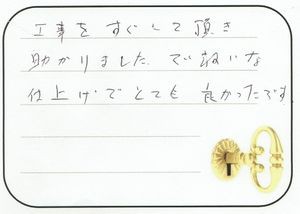 工事をすぐして頂き
助かりました。で
仕上げでとても良かったです